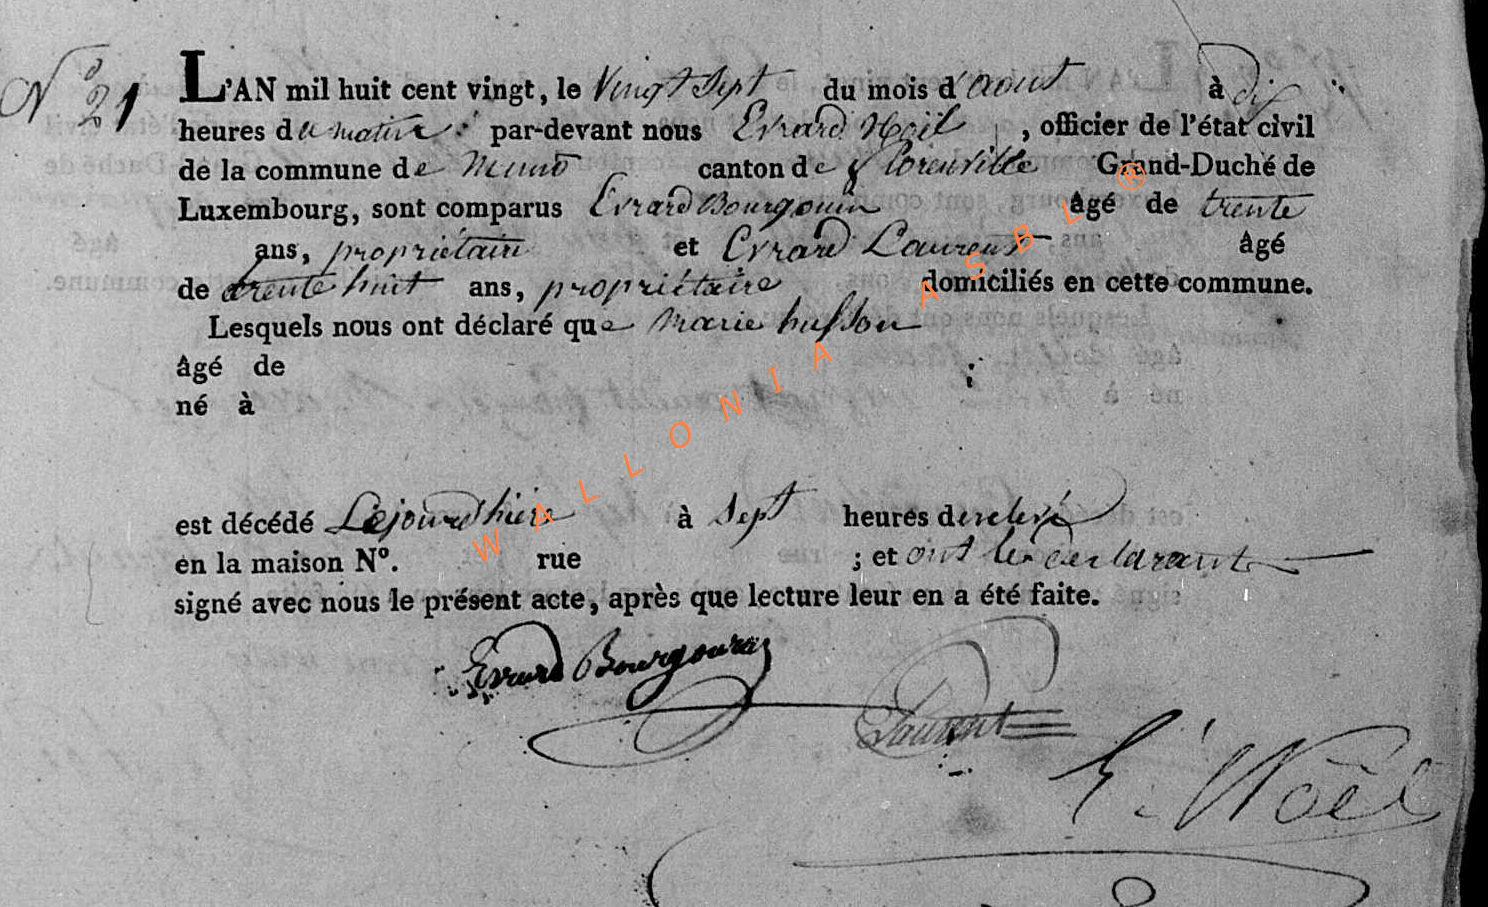 Nº 21
L'AN mil huit cent vingt, le Vingt Sept du mois d'aout à dix
heures du matin par-devant nous Evrard Noël, officier de l'état civil
de la commune de Muno canton de florenville Grand-Duché de
Luxembourg, sont comparus Evrard Bourgouin âgé de trente
ans, propriétaire et Evrard Laurent âgé
de trente huit ans, propriétaire domiciliés en cette commune.
Lesquels nous ont déclaré que Marie husson
âgé de ;
né à
est décédé Lejourdhier à Sept heures
en la maison Nº. rue ; et ont les declarants
signé avec nous le présent acte, après que lecture leur en a été faite.
Evrard Bourgouin
Laurent
E. Noël
WALLONIA ASBL ®